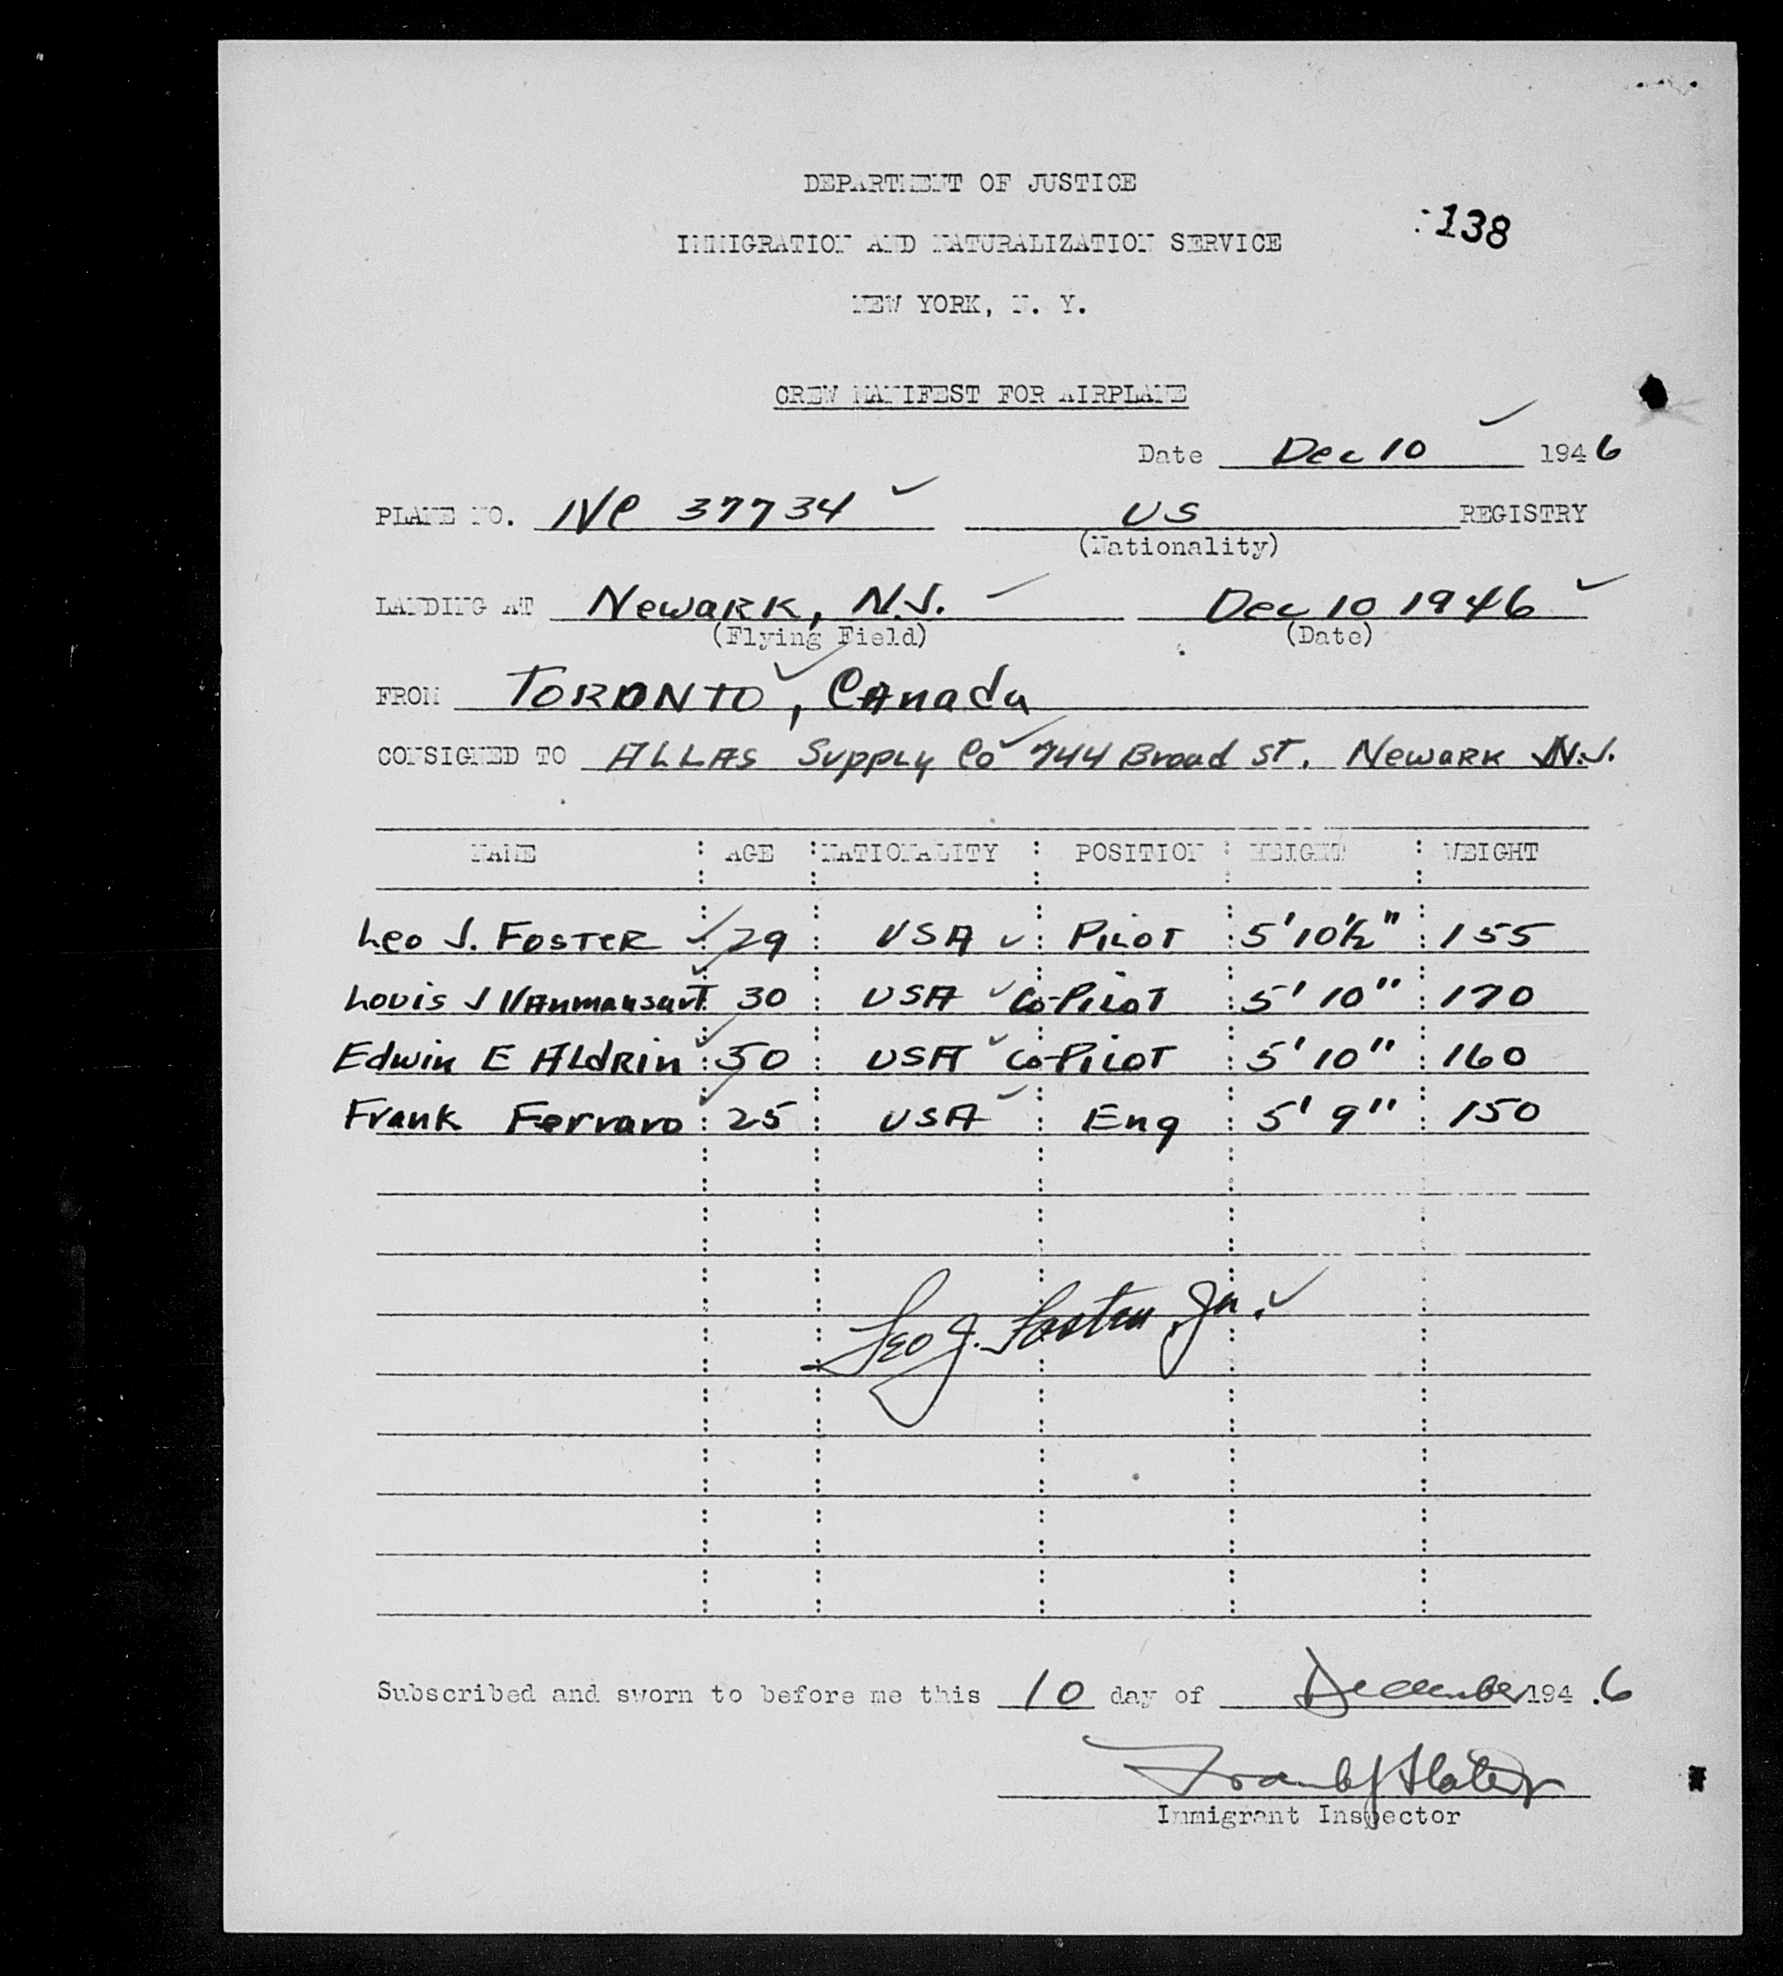 DEPARTMENT OF JUSTICE
138
IMMIGRATION AND NATURALIZATION SERVICE
NEW YORK, N. Y.
CREW MANIFEST FOR AIRPLANE
Date Dec 10 1946
PLANE NO. NC 37734 US REGISTRY
(Nationality)
LANDING AT Newark, N.J. Dec 10 1946
(Flying Field) (Date)
FROM TORONTO, Canada
CONSIGNED TO ALLAS Supply Co 744 Broad ST. Newark N.J.
NAME : AGE : NATIONALITY : POSITION : HEIGHT : WEIGHT
Leo J. FOSTER 29 USA PILOT 5' 10½" 155
Louis J 30 USA Co-PILOT 5' 10" 170
Edwin E Aldrin 50 USA Co-PILOT 5' 10" 160
Frank Ferraro 25 USA Eng 5' 9" 150
Leo J. Foster Jr.
Subscribed and sworn to before me this 10 day of December 194.6
Immigrant Inspector